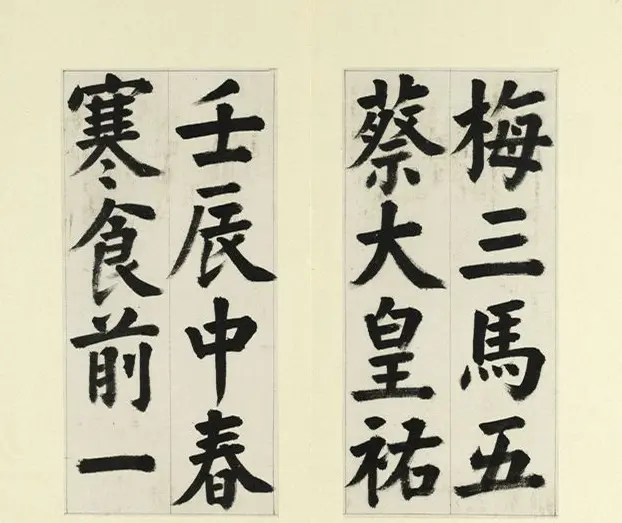 梅三馬五
蔡大皇祐
壬辰中春
寒食前一